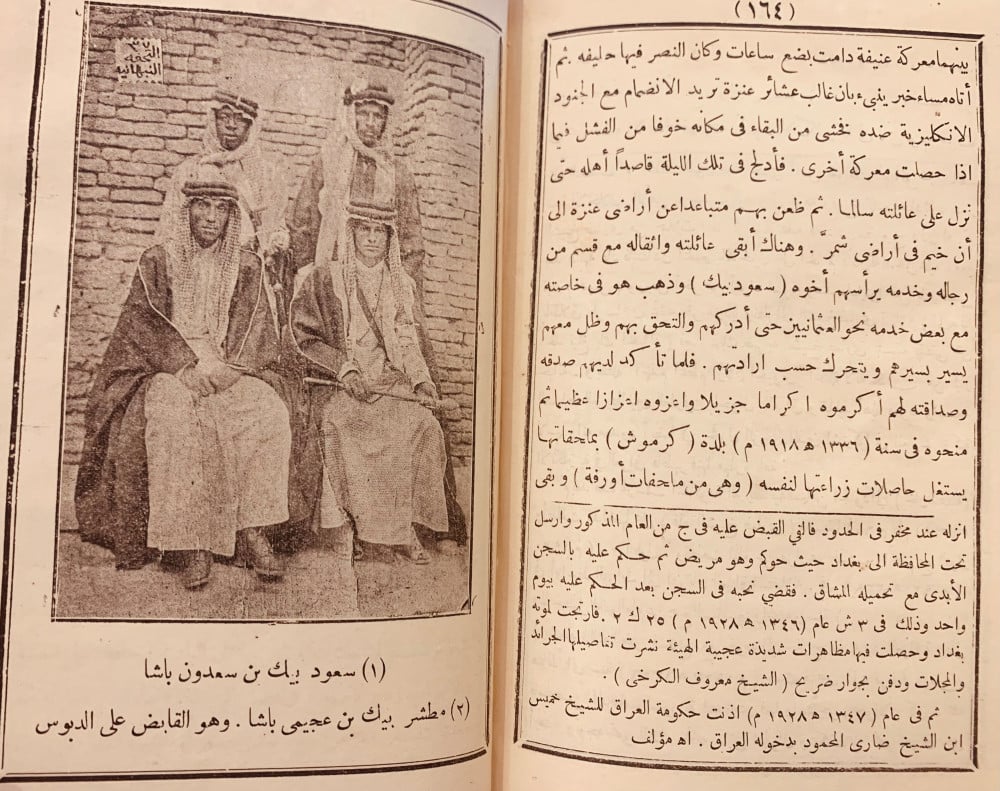 (١٦٤)
بينهما معركة عنيفة دامت بضع ساعات وكان النصر فيها حليفه . ثم
أتاه مساء خبر ينبىء بان غالب عشائر عنزة تريد الانضمام مع الجنود
الانكليزية ضده فخشى من البقاء فى مكانه خوفا من الفشل فيما
اذا حصلت معركة أخرى . فأدلج فى تلك الليلة قاصداً أهله حتى
نزل على عائلته سالما . ثم ظعن بهم متباعدا عن أراضى عنزة الى
أن خيم فى أراضى شمرَّ . وهناك أبقى عائلته واثقاله مع قسم من
رجاله وخدمه يرأسهم أخوه ( سعود بيك ) وذهب هو فى خاصته
مع بعض خدمه نحو العثمانيين حتى أدركهم والتحق بهم وظل معهم
يسير بسيرهم ويتحرك حسب ارادتهم . فلما تأكد لديهم صدقه
وصداقته لهم أكرموه اكراما جزيلا واعزوه اعزازا عظيما ثم
منحوه فى سنة ( ١٣٣٦ ه ١٩١٨ م ) بلدة ( كرموش ) بملحقاتها
يستغل حاصلات زراعتها لنفسه ( وهى من ملحقات أورفة ) وبقى
انزله عند مخفر فى الحدود فالقي القبض عليه فى ج من العام المذكور وارسل
تحت المحافظة الى بغداد حيث حوكم وهو مريض ثم حكم عليه بالسجن
الأبدى مع تحميله المشاق . فقضي نحبه فى السجن بعد الحكم عليه بيوم
واحد وذلك فى ٣ ش عام (١٣٤٦ ه ١٩٢٨ م ) ٢٥ ك ٢ . فارتجت لموته
بغداد وحصلت فيها مظاهرات شديدة عجيبة الهيئة نشرت تفاصيلها الجرائد
والمجلات ودفن بجوار ضريح ( الشيخ معروف الكرخى ) .
ثم فى عام ( ١٣٤٧ ه ١٩٢٨ م ) اذنت حكومة العراق للشيخ خميس
ابن الشيخ ضارى المحمود بدخوله العراق . اه مؤلف
٣٧
التحفة
النبهانيه
(١) سعود بيك بن سعدون باشا
(٢) مطشر بيك بن عجيمى باشا . وهو القابض على الدبوس